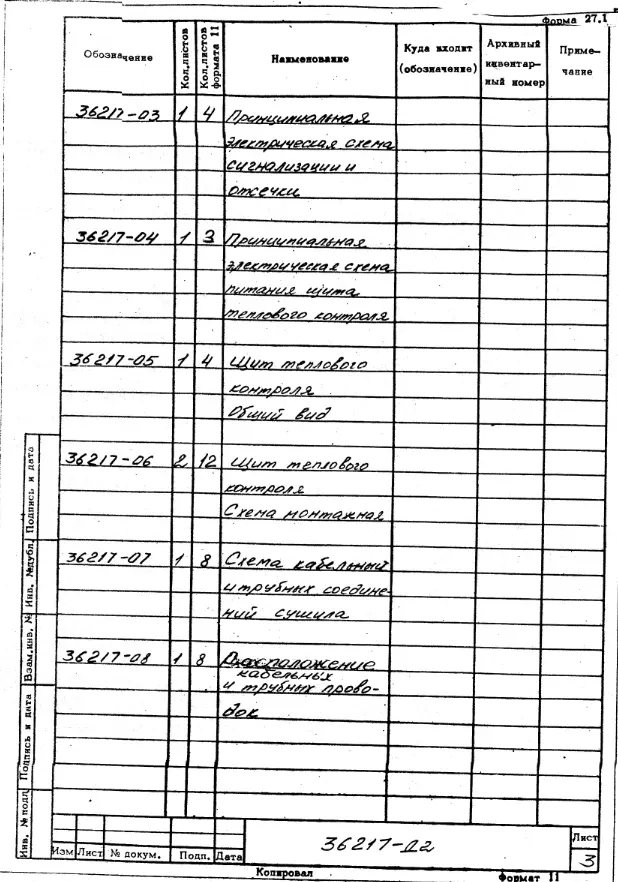 Форма 27.1
Обозначение Кол.листов Кол.листов формата 11 Наименование Куда входит (обозначение) Архивный инвентарный номер Примечание
36217-03 1 4 Принципиальная
электрическая схема
сигнализации и
отсечки
36217-04 1 3 Принципиальная
электрическая схема
питания щита
теплового контроля
36217-05 1 4 Щит теплового
контроля
Общий вид
36217-06 2 12 Щит теплового
контроля
Схема монтажная
36217-07 1 8 Схема кабельных
и трубных соедине-
ний сушила
36217-08 1 8 Расположение
кабельных
и трубных прово-
док
Инв. № подл. Подпись и дата Взам.инв. № Инв. № дубл. Подпись и дата
36217-Д2
Лист
3
Изм Лист № докум. Подп. Дата
Копировал Формат 11